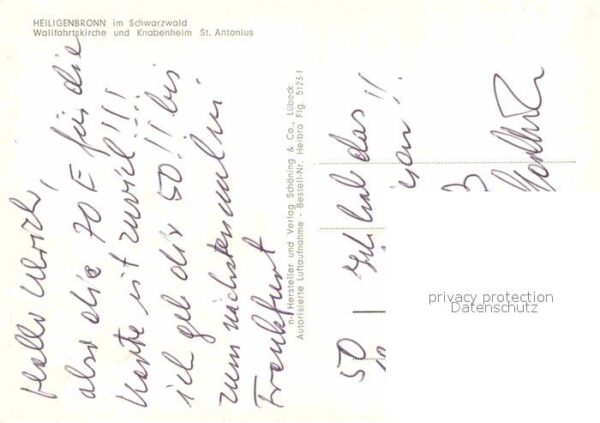 HEILIGENBRONN im Schwarzwald
Wallfahrtskirche und Knabenheim St. Antonius
Hallo Ulrich,
also die 70 E für die
Karte ist zuviel!!!!
ich geb dir 50!! bis
zum nächstenmal in
Frankfurt
n-j Hersteller und Verlag Schöning & Co., Lübeck
Autorisierte Luftaufnahme - Bestell-Nr. Heibro Flg. 5123 f
50 | Ich hab das
!!
privacy protection
Datenschutz